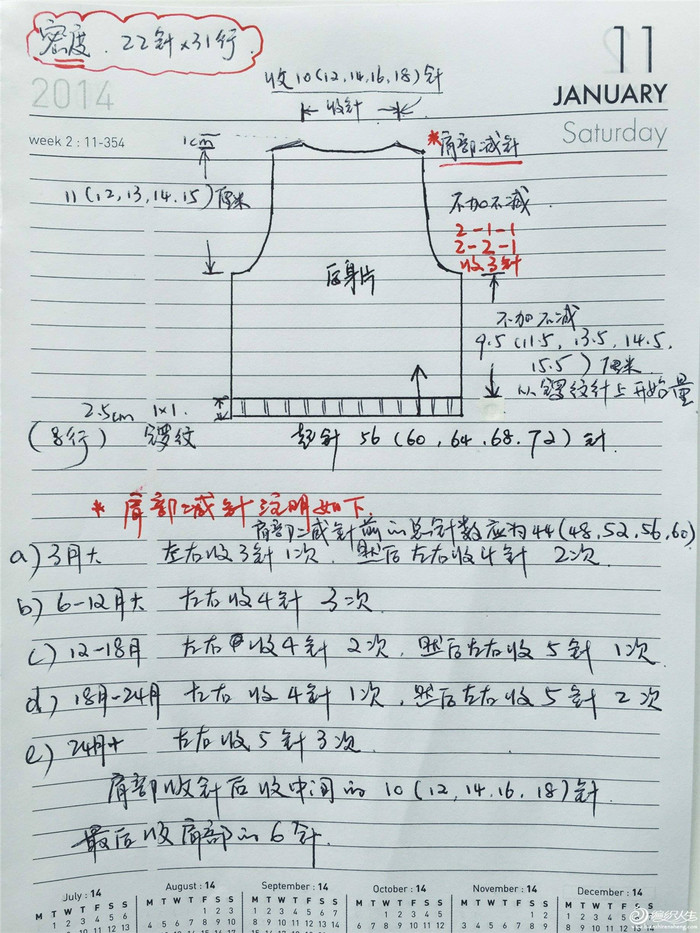 密度. 22针×31行.
11
2014
JANUARY
收10(12,14,16,18)针
收针
Saturday
week 2 : 11-354
1cm
*肩部减针
11(12,13,14.15)厘米
不加不减
2-1-1
2-2-1
收3针
后身片
不加不减
9.5(11.5, 13.5, 14.5,
15.5)厘米
从罗纹针上开始量
2.5cm 1x1.
(8行) 罗纹
起针 56(60,64.68.72)针
* 肩部减针注明如下.
肩部减针前的总针数应为44(48,52,56,60)
a) 3月大 左右收3针1次, 然后左右收4针 2次.
b) 6-12月大 左右收4针 3次.
c) 12-18月 左右收4针 2次, 然后左右收5针 1次.
d) 18月-24月 左右收4针 1次, 然后左右收5针 2次
e) 24月+ 左右收5针3次.
肩部收针后收中间的 10(12,14.16, 18)针.
最后收肩部的6针.
July : 14
August : 14
September : 14
October : 14
November : 14
December : 14
M T W T F S S
M T W T F S S
M T W T F S S
M T W T F S S
M T W T F S S
M T W T F S S